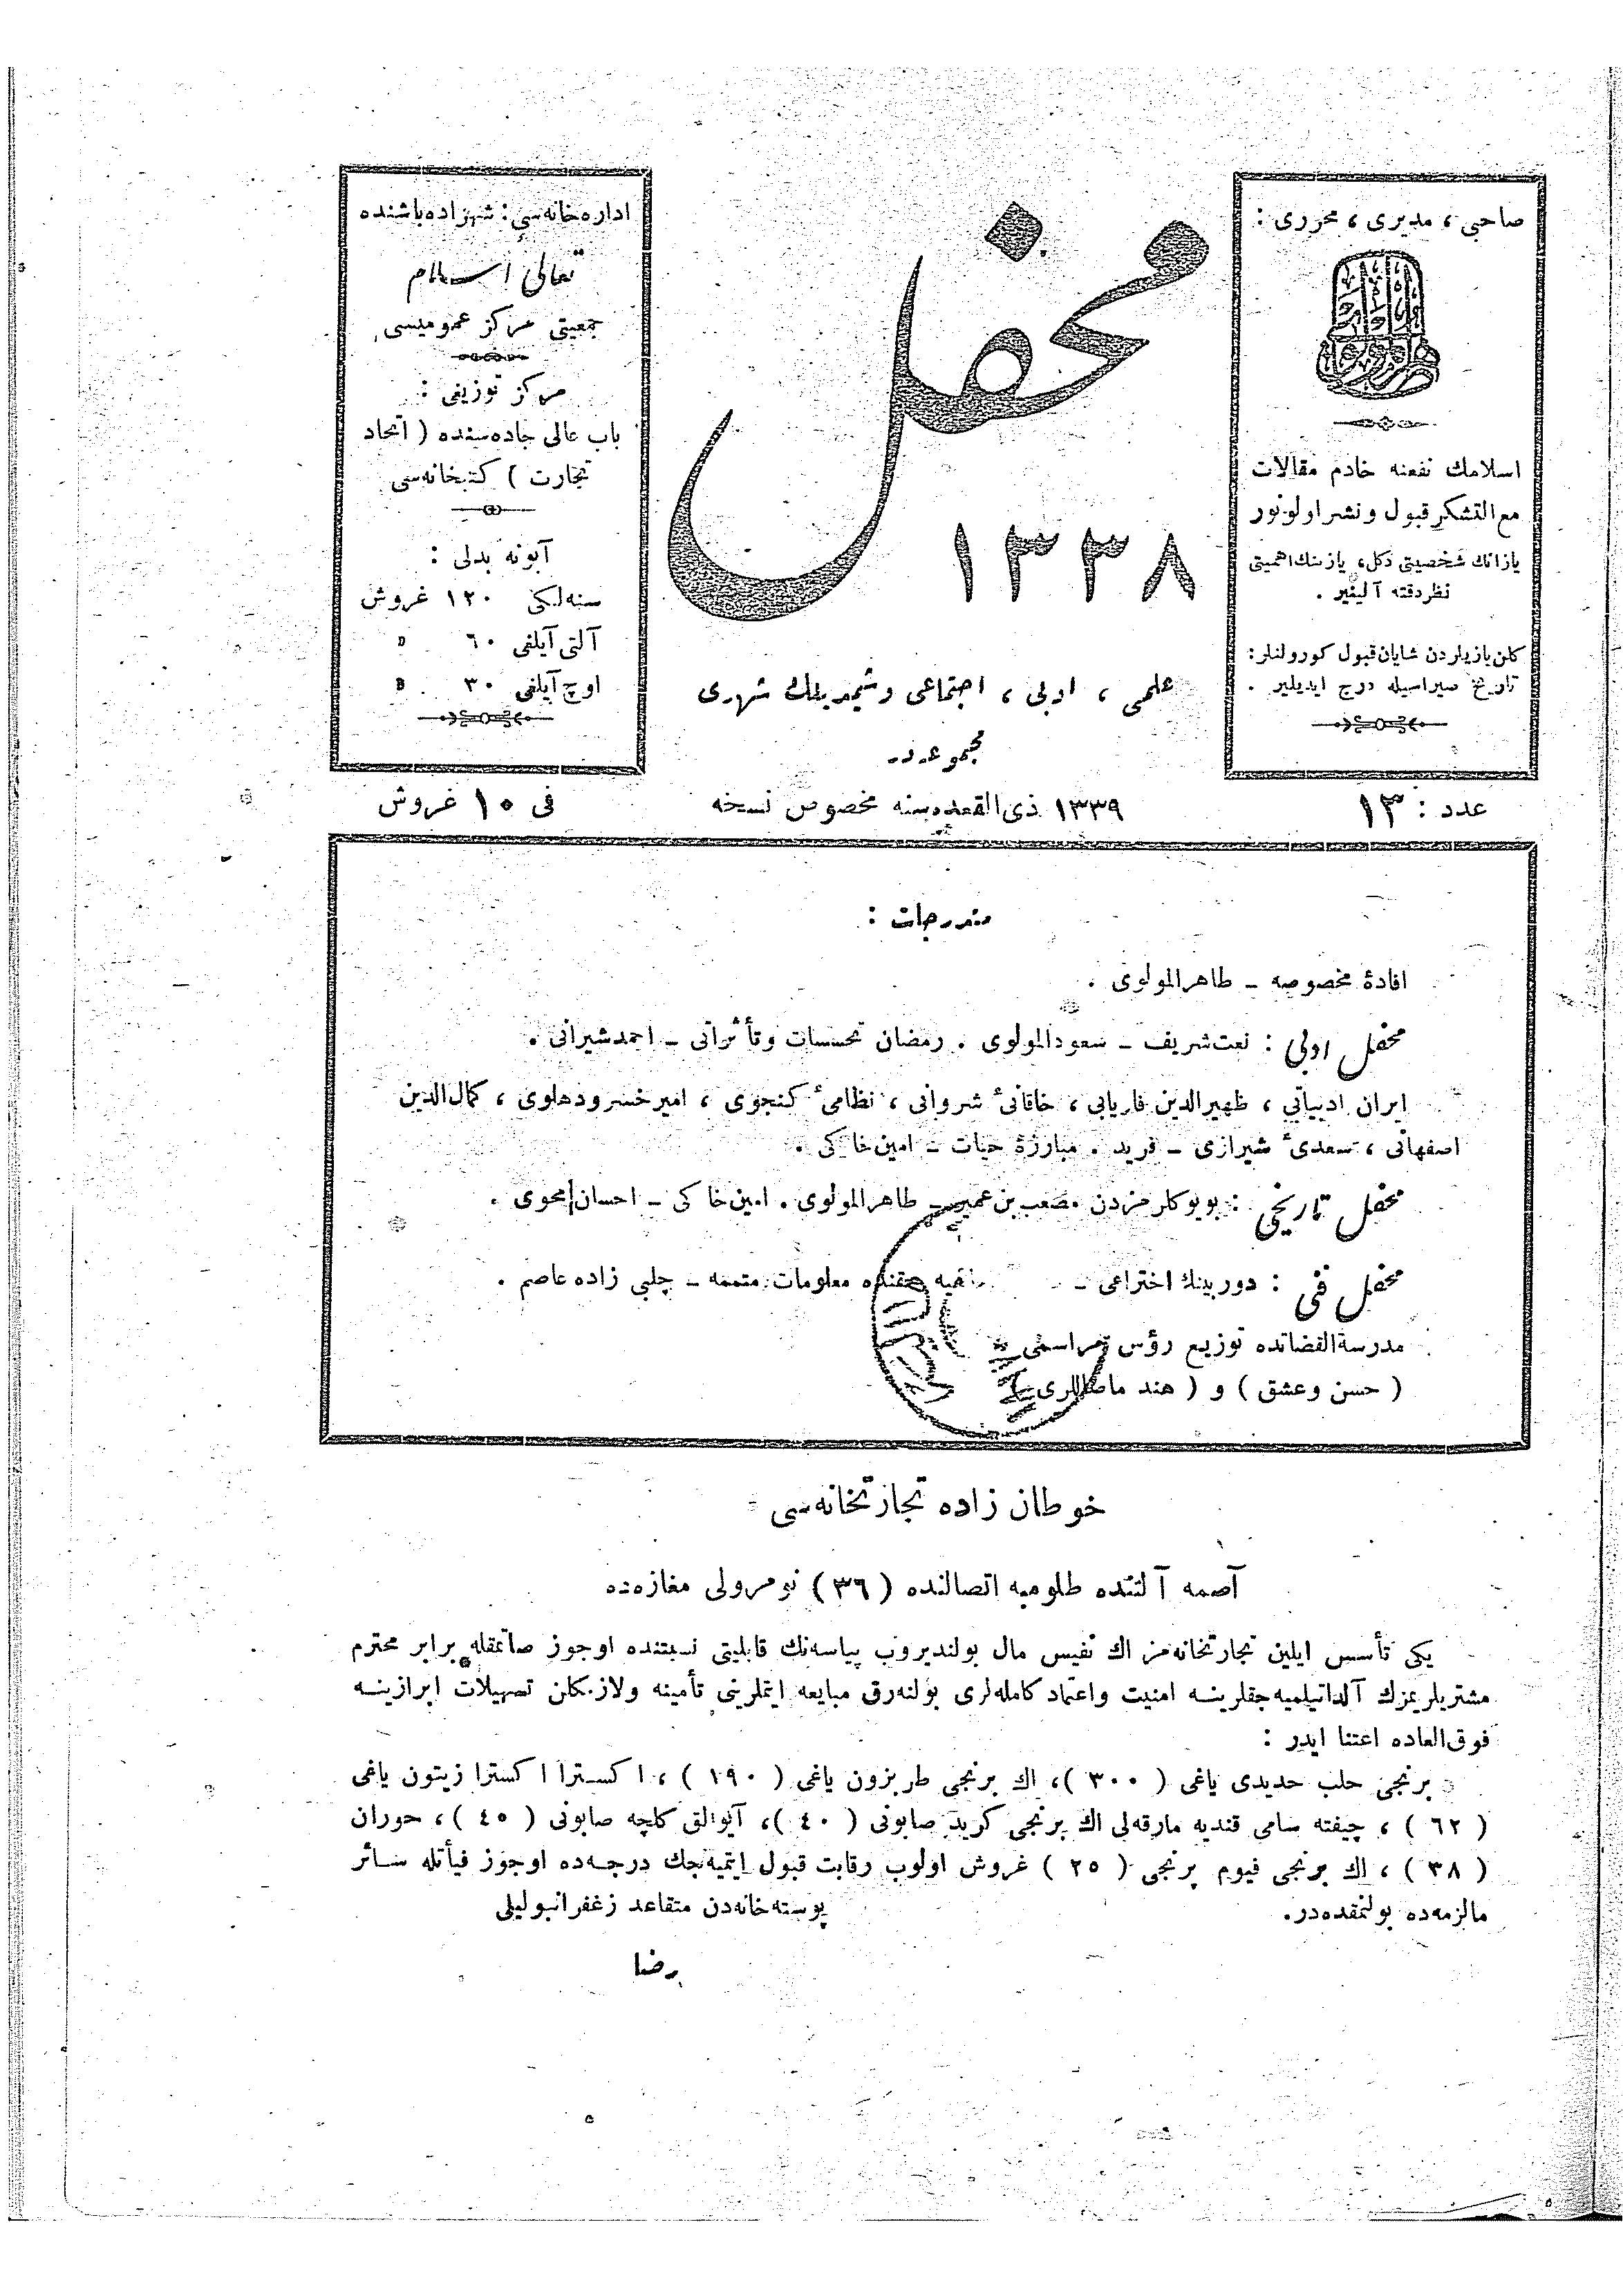 صاحبی ، مدیری ، محرری :
اسلامك نفعنه خادم مقالات
مع التشکر قبول و نشر اولونور
یازانك شخصیتی دکل، یازینك اهمیتی
نظر دقته آلینیر .
کلن یازیلردن شایان قبول کورولنلر:
تاریخ صیراسیله درج ایدیلیر .
محفل
١٣٣٨
علمی ، ادبی ، اجتماعی و شیمدیلك شهری
مجموعه در
اداره خانه سی : شهزاده باشنده
تعالی اسلام
جمعیتی مرکز عمومیسی
مرکز توزیعی :
باب عالی جاده سنده ( اتحاد
تجارت ) کتبخانه سی
آبونه بدلی :
سنه لکی ١٢٠ غروش
آلتی آیلغی ٦٠ »
اوچ آیلغی ٣٠ »
عدد : ١٣
١٣٣٩ ذی القعده سنه مخصوص نسخه
فی ١٠ غروش
مندرجات :
افادهٔ مخصوصه ـ طاهر المولوی .
محفل ادبی : نعت شریف ـ سعود المولوی . رمضان تحسسات و تأثراتی ـ احمد شیرانی .
ایران ادبیاتی ، ظهیرالدین فاریابی ، خاقانیٔ شروانی ، نظامیٔ کنجوی ، امیر خسرو دهلوی ، کمال الدین
اصفهانی ، سعدیٔ شیرازی ـ فرید . مبارزهٔ حیات ـ امین خاکی .
محفل تاریخی : بویوکلرمزدن مصعب بن عمیر ـ طاهر المولوی . امین خاکی ـ احسان محوی .
محفل فنی : دوربینك اختراعی ـ حقنده معلومات متممه ـ چلبی زاده عاصم .
مدرسة القضاتده توزیع رؤس مراسمی
( حسن و عشق ) و ( هند ماصاللری )
خوطان زاده تجارتخانه سی
آصمه آلتنده طلومبه اتصالنده ( ٣٦ ) نومرولی مغازه ده
یکی تأسس ایلین تجارتخانه مز اك نفیس مال بولندیروب پیاسه نك قابلیتی نسبتنده اوجوز صاتمقله برابر محترم
مشتریلریمزك آلداتیلمیه جقلرینه امنیت و اعتماد کامله لری بولنه رق مبایعه ایتملرینی تأمینه ولازمکلن تسهیلات ابرازینه
فوق العاده اعتنا ایدر :
برنجی حلب حدیدی یاغی ( ٣٠٠ )، اك برنجی طربزون یاغی ( ١٩٠ ) ، اکسترا اکسترا زیتون یاغی
( ٦٢ ) ، چیفته سامی قندیه مارقه لی اك برنجی کرید صابونی ( ٤٠ )، آیوالق کلچه صابونی ( ٤٥ )، حوران
( ٣٨ ) ، اك برنجی فیوم پرنجی ( ٢٥ ) غروش اولوب رقابت قبول ایتمیه جك درجه ده اوجوز فیأتله سائر
مالزمه ده بولنمقده در.
پوسته خانه دن متقاعد زغفرانبولیلی
رضا